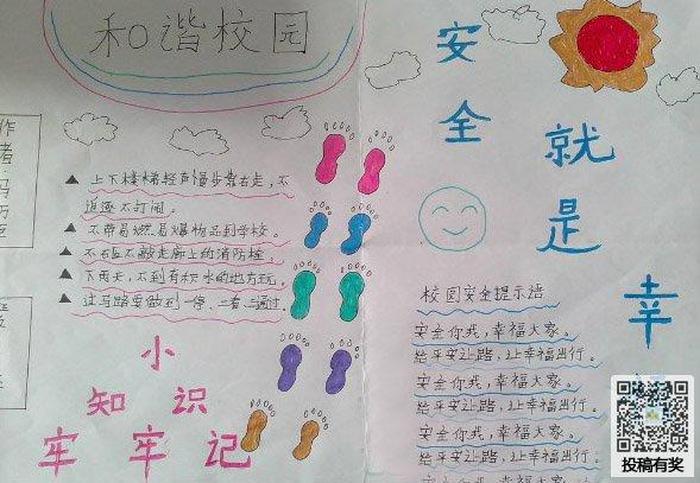 和谐校园
▲ 上下楼梯轻声慢步靠右走，不
追逐不打闹。
▲ 不带易燃易爆物品到学校。
▲ 不敲走廊上的消防栓。
▲ 下雨天，不到有积水的地方玩。
▲ 过马路要做到一停、二看、三通过.
小
知识
牢牢记
安全
就是
幸
校园安全提示语
安全你我，幸福大家。
给平安让路，让幸福出行。
安全你我，幸福大家。
给平安让路，让幸福出行。
安全你我，幸福大家。
给平安让路，让幸福出行。
安全你我，幸福大家。
作
者
投稿有奖